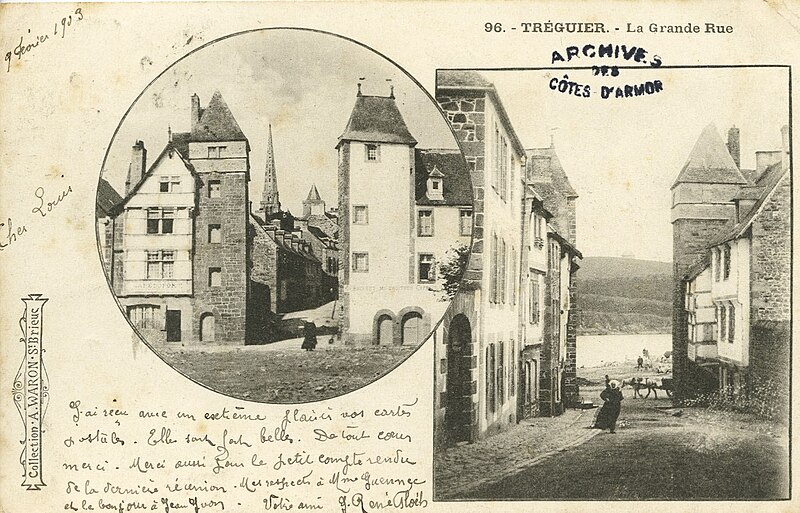 9 février 1903
96. - TRÉGUIER. - La Grande Rue
ARCHIVES
DES
CÔTES-D'ARMOR
Cher Louis
Collection A. WARON St Brieuc
J'ai reçu avec un extrême plaisir vos cartes
postales. Elles sont fort belles. De tout cœur
merci. Merci aussi pour le petit compte rendu
de la dernière réunion. Mes respects à Mme Guennec
et le bonjour à Jean Yvon. Votre ami J. René